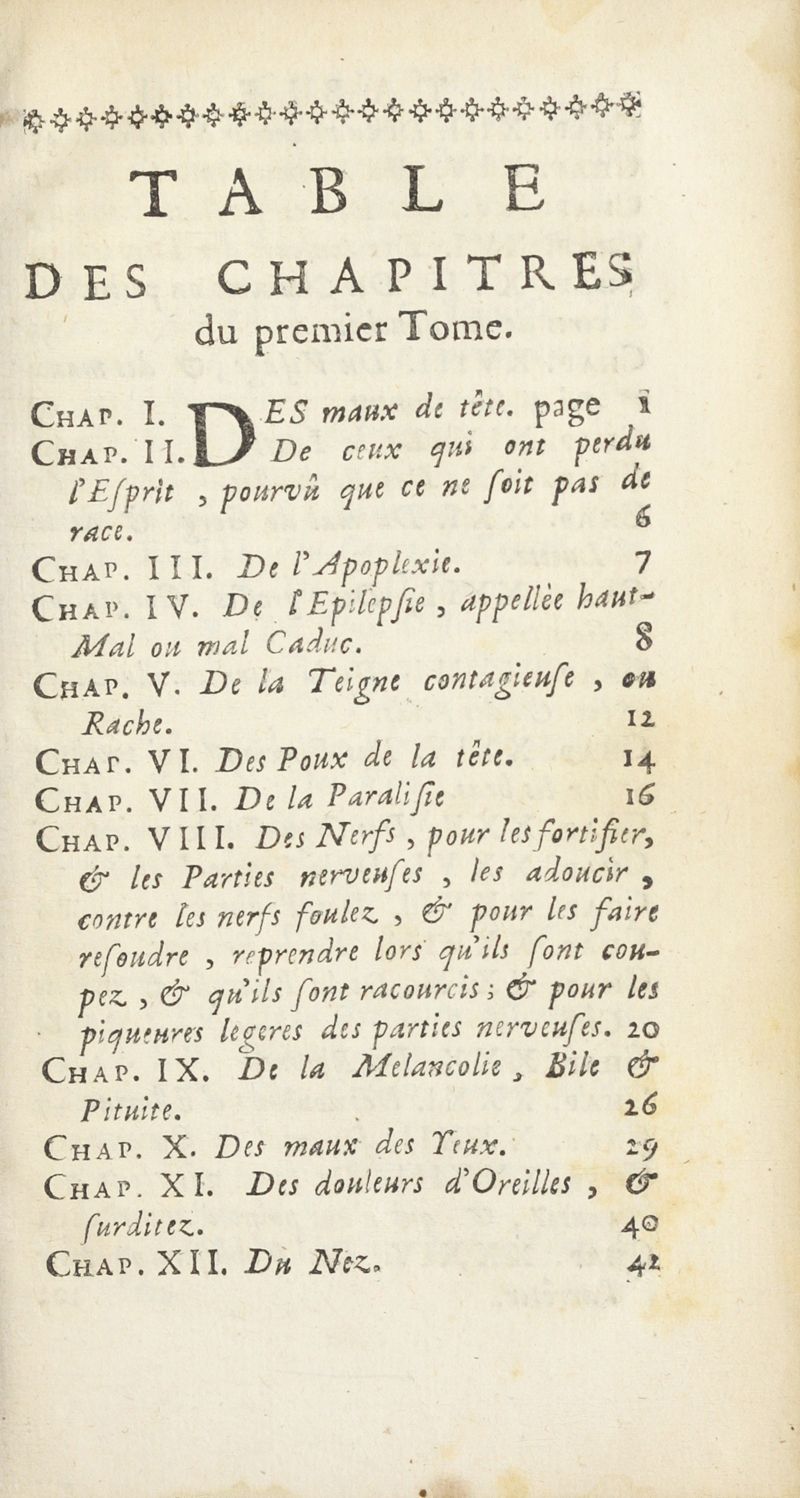 TABLE
DES CHAPITRES
du premier Tome.
CHAP. I. DES maux de tête. page 1
CHAP. II. De ceux qui ont perdu
l'Eſprit , pourvû que ce ne ſoit pas de
race. 6
CHAP. III. De l'Apoplexie. 7
CHAP. IV. De l'Epilepſie , appellée haut-
Mal ou mal Caduc. 8
CHAP. V. De la Teigne contagieuſe , ou
Rache. 12
CHAP. VI. Des Poux de la tête. 14
CHAP. VII. De la Paraliſie 16
CHAP. VIII. Des Nerfs , pour les fortifier,
& les Parties nerveuſes , les adoucir ,
contre les nerfs foulez , & pour les faire
reſoudre , reprendre lors qu'ils ſont cou-
pez , & qu'ils ſont racourcis ; & pour les
piqueures legeres des parties nerveuſes. 20
CHAP. IX. De la Melancolie , Bile &
Pituite. 26
CHAP. X. Des maux des Yeux. 29
CHAP. XI. Des douleurs d'Oreilles , &
ſurditez. 40
CHAP. XII. Du Nez. 42